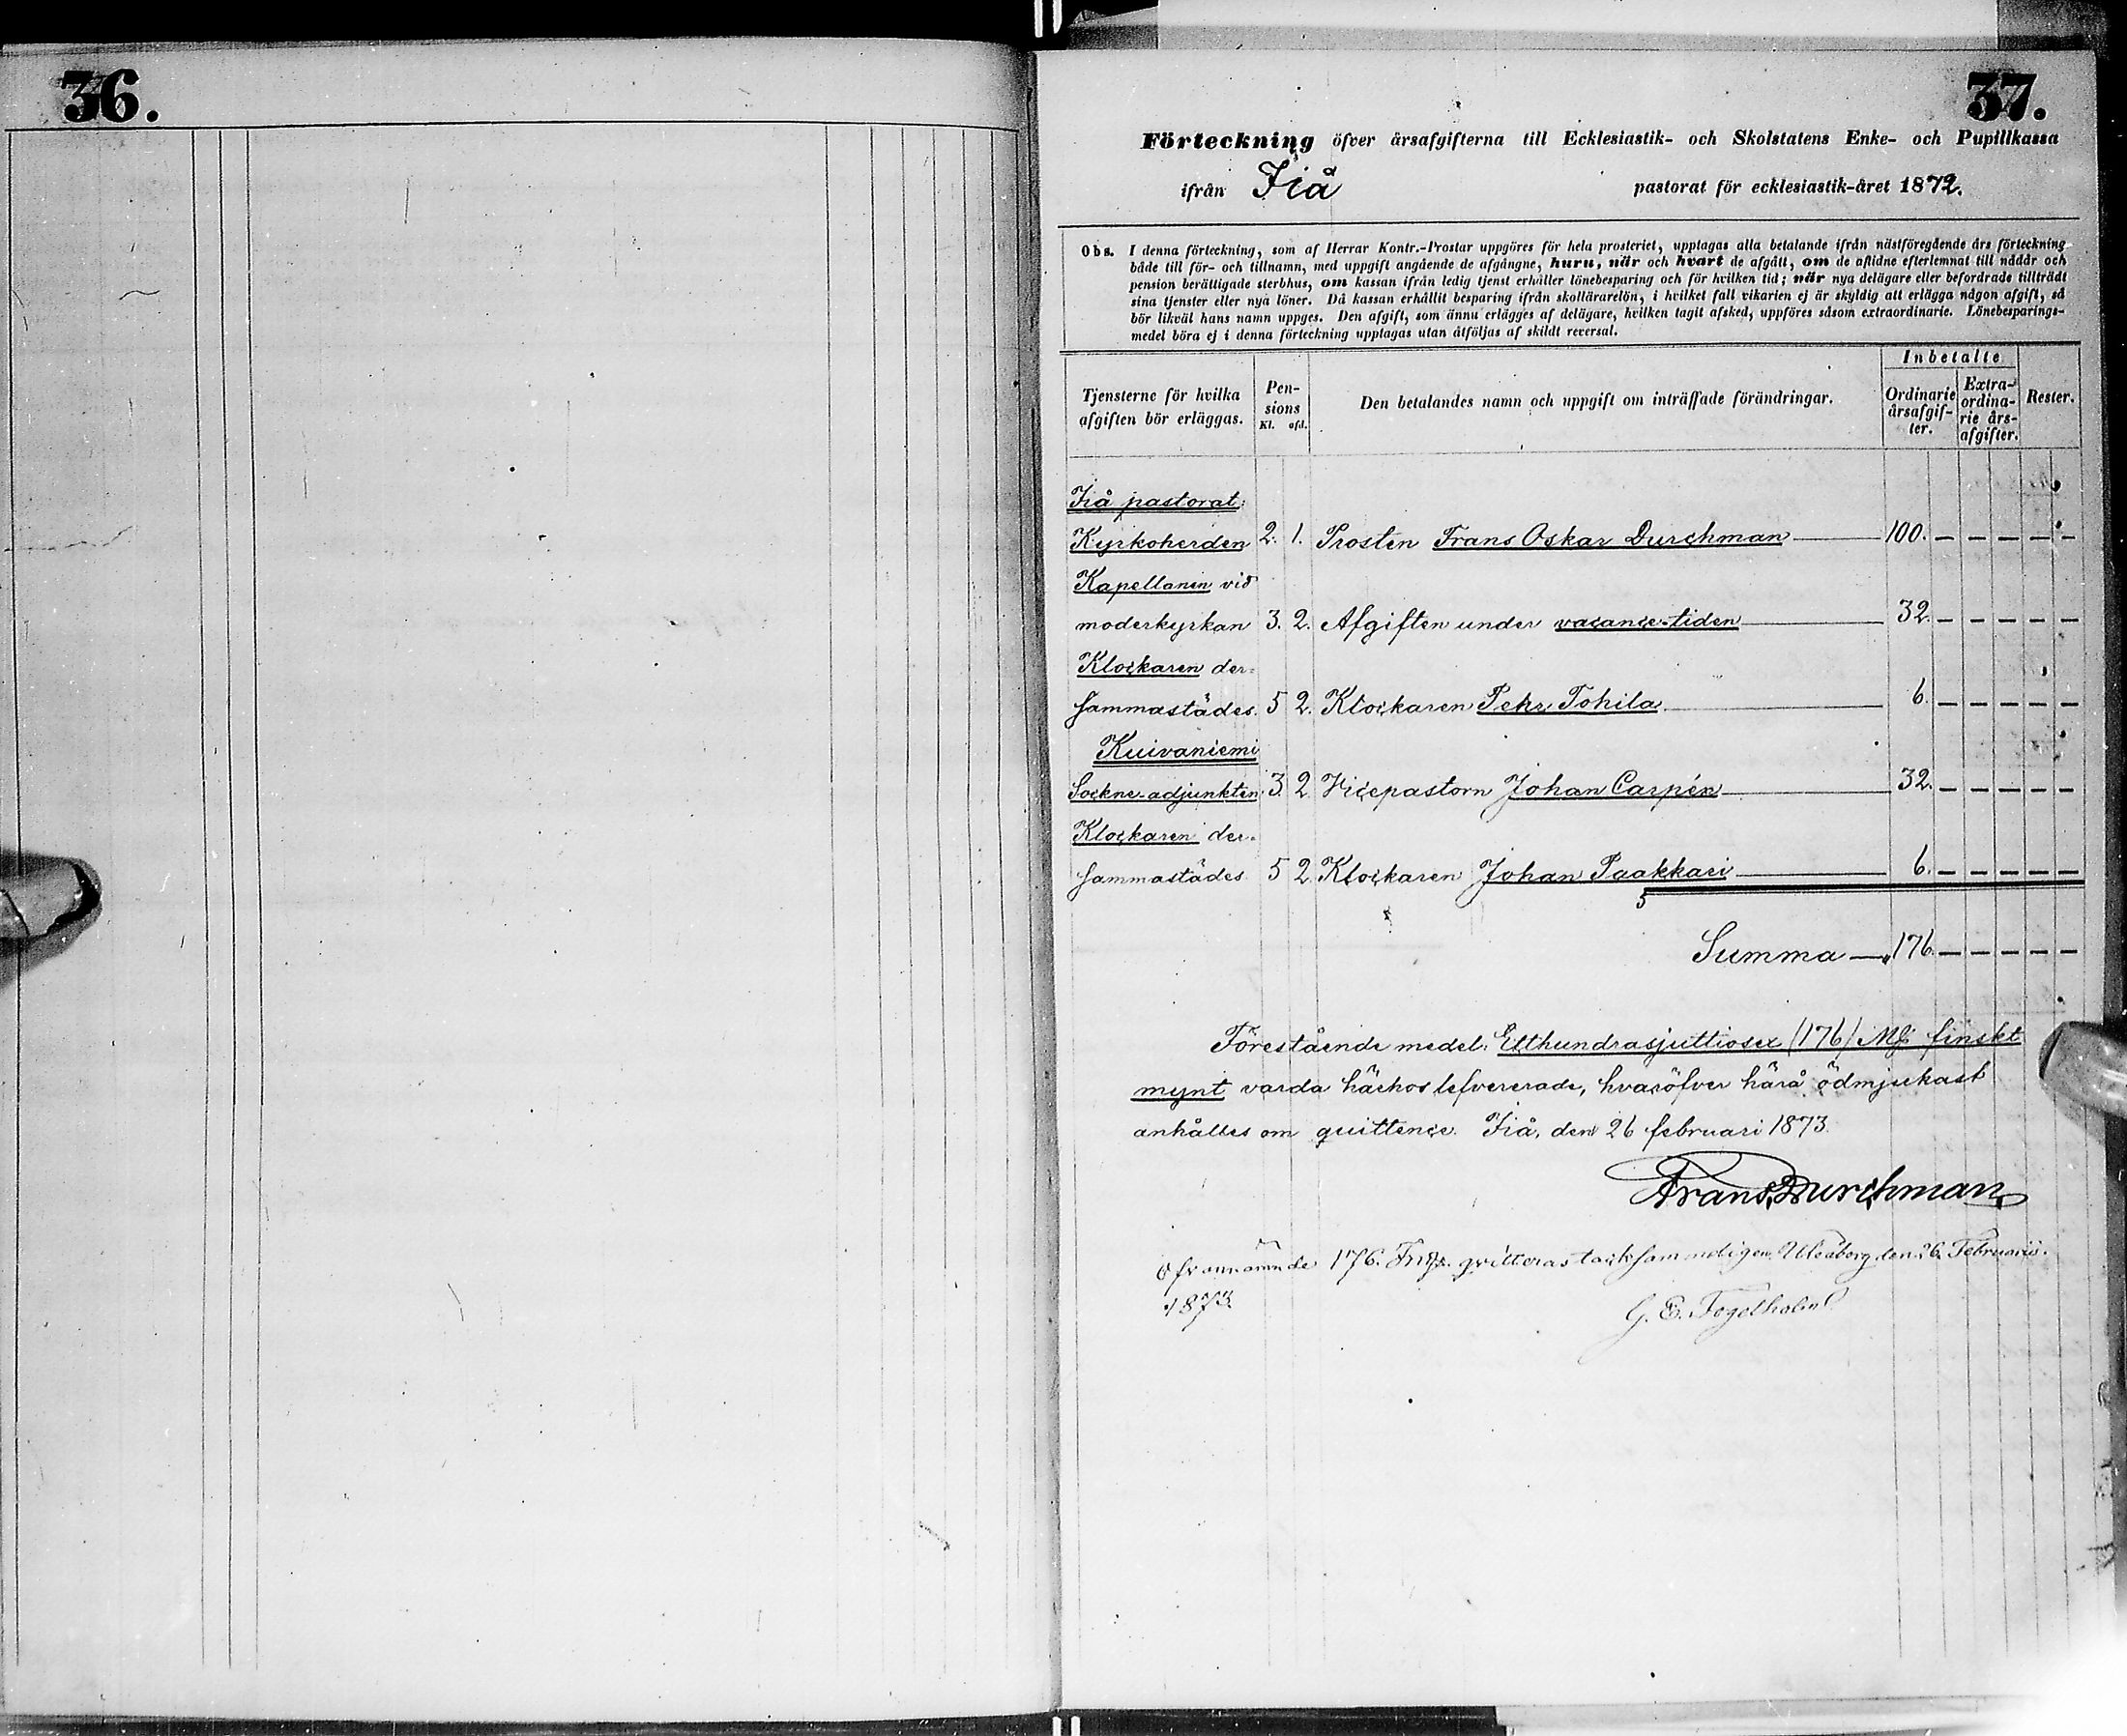 36.
37.
Förteckning öfver årsafgifterna till Ecklesiastik- och Skolstatens Enke- och Pupillkassa
ifrån Iiå pastorat för ecklesiastik-året 1872.
Obs. I denna förteckning, som af Herrar Kontr.-Prostar uppgöres för hela prosteriet, upptagas alla betalande ifrån nästföregående års förteckning
både till för- och tillnamn, med uppgift angående de afgångne, huru, när och hvart de afgått, om de aflidne efterlemnat till nådår och
pension berättigade sterbhus, om kassan ifrån ledig tjenst erhåller lönebesparing och för hvilken tid; när nya delägare eller befordrade tillträdt
sina tjenster eller nya löner. Då kassan erhållit besparing ifrån skollärarelön, i hvilket fall vikarien ej är skyldig att erlägga någon afgift, så
bör likväl hans namn uppges. Den afgift, som ännu erlägges af delägare, hvilken tagit afsked, uppföres såsom extraordinarie. Lönebesparings-
medel böra ej i denna förteckning upptagas utan åtföljas af skildt reversal.
Tjensterne för hvilka
afgiften bör erläggas.
Pen-
sions
Kl. afd.
Den betalandes namn och uppgift om inträffade förändringar.
Inbetalte
Ordinarie
årsafgif-
ter.
Extra-
ordina-
rie års-
afgifter.
Rester.
Iiå pastorat:
Kyrkoherden 2. 1. Prosten Frans Oskar Durchman 100. — — — — —
Kapellanen vid
moderkyrkan 3. 2. Afgiften under vacance-tiden 32. — — — — —
Klockaren der-
sammastädes. 5 2. Klockaren Pehr Tohila 6. — — — — —
Kuivaniemi
Sockne-adjunkten 3. 2 Vicepastorn Johan Carpén 32. — — — — —
Klockaren der-
sammastädes 5 2. Klockaren Johan Paakkari 6. — — — — —
5
Summa — 176. — — — — —
Förestående medel: Etthundrasjuttiosex (176) Mk finskt
mynt varda härhos lefvererade, hvaröfver härå ödmjukast
anhålles om quittence. Iiå, den 26 februari 1873.
Frans Durchman
Ofvannämnde 176. Fmk. qvitteras tacksammeligen. Uleåborg den 26 Februarii.
1873.
G. E. Fogelholm